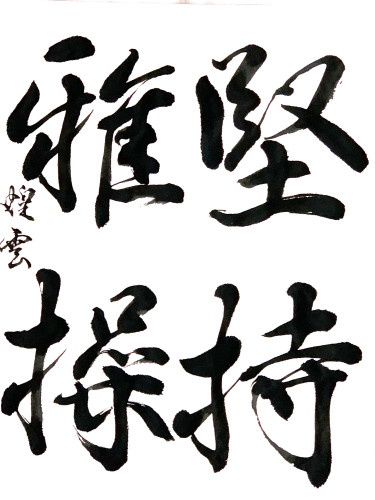 堅持
雅操
煌雲